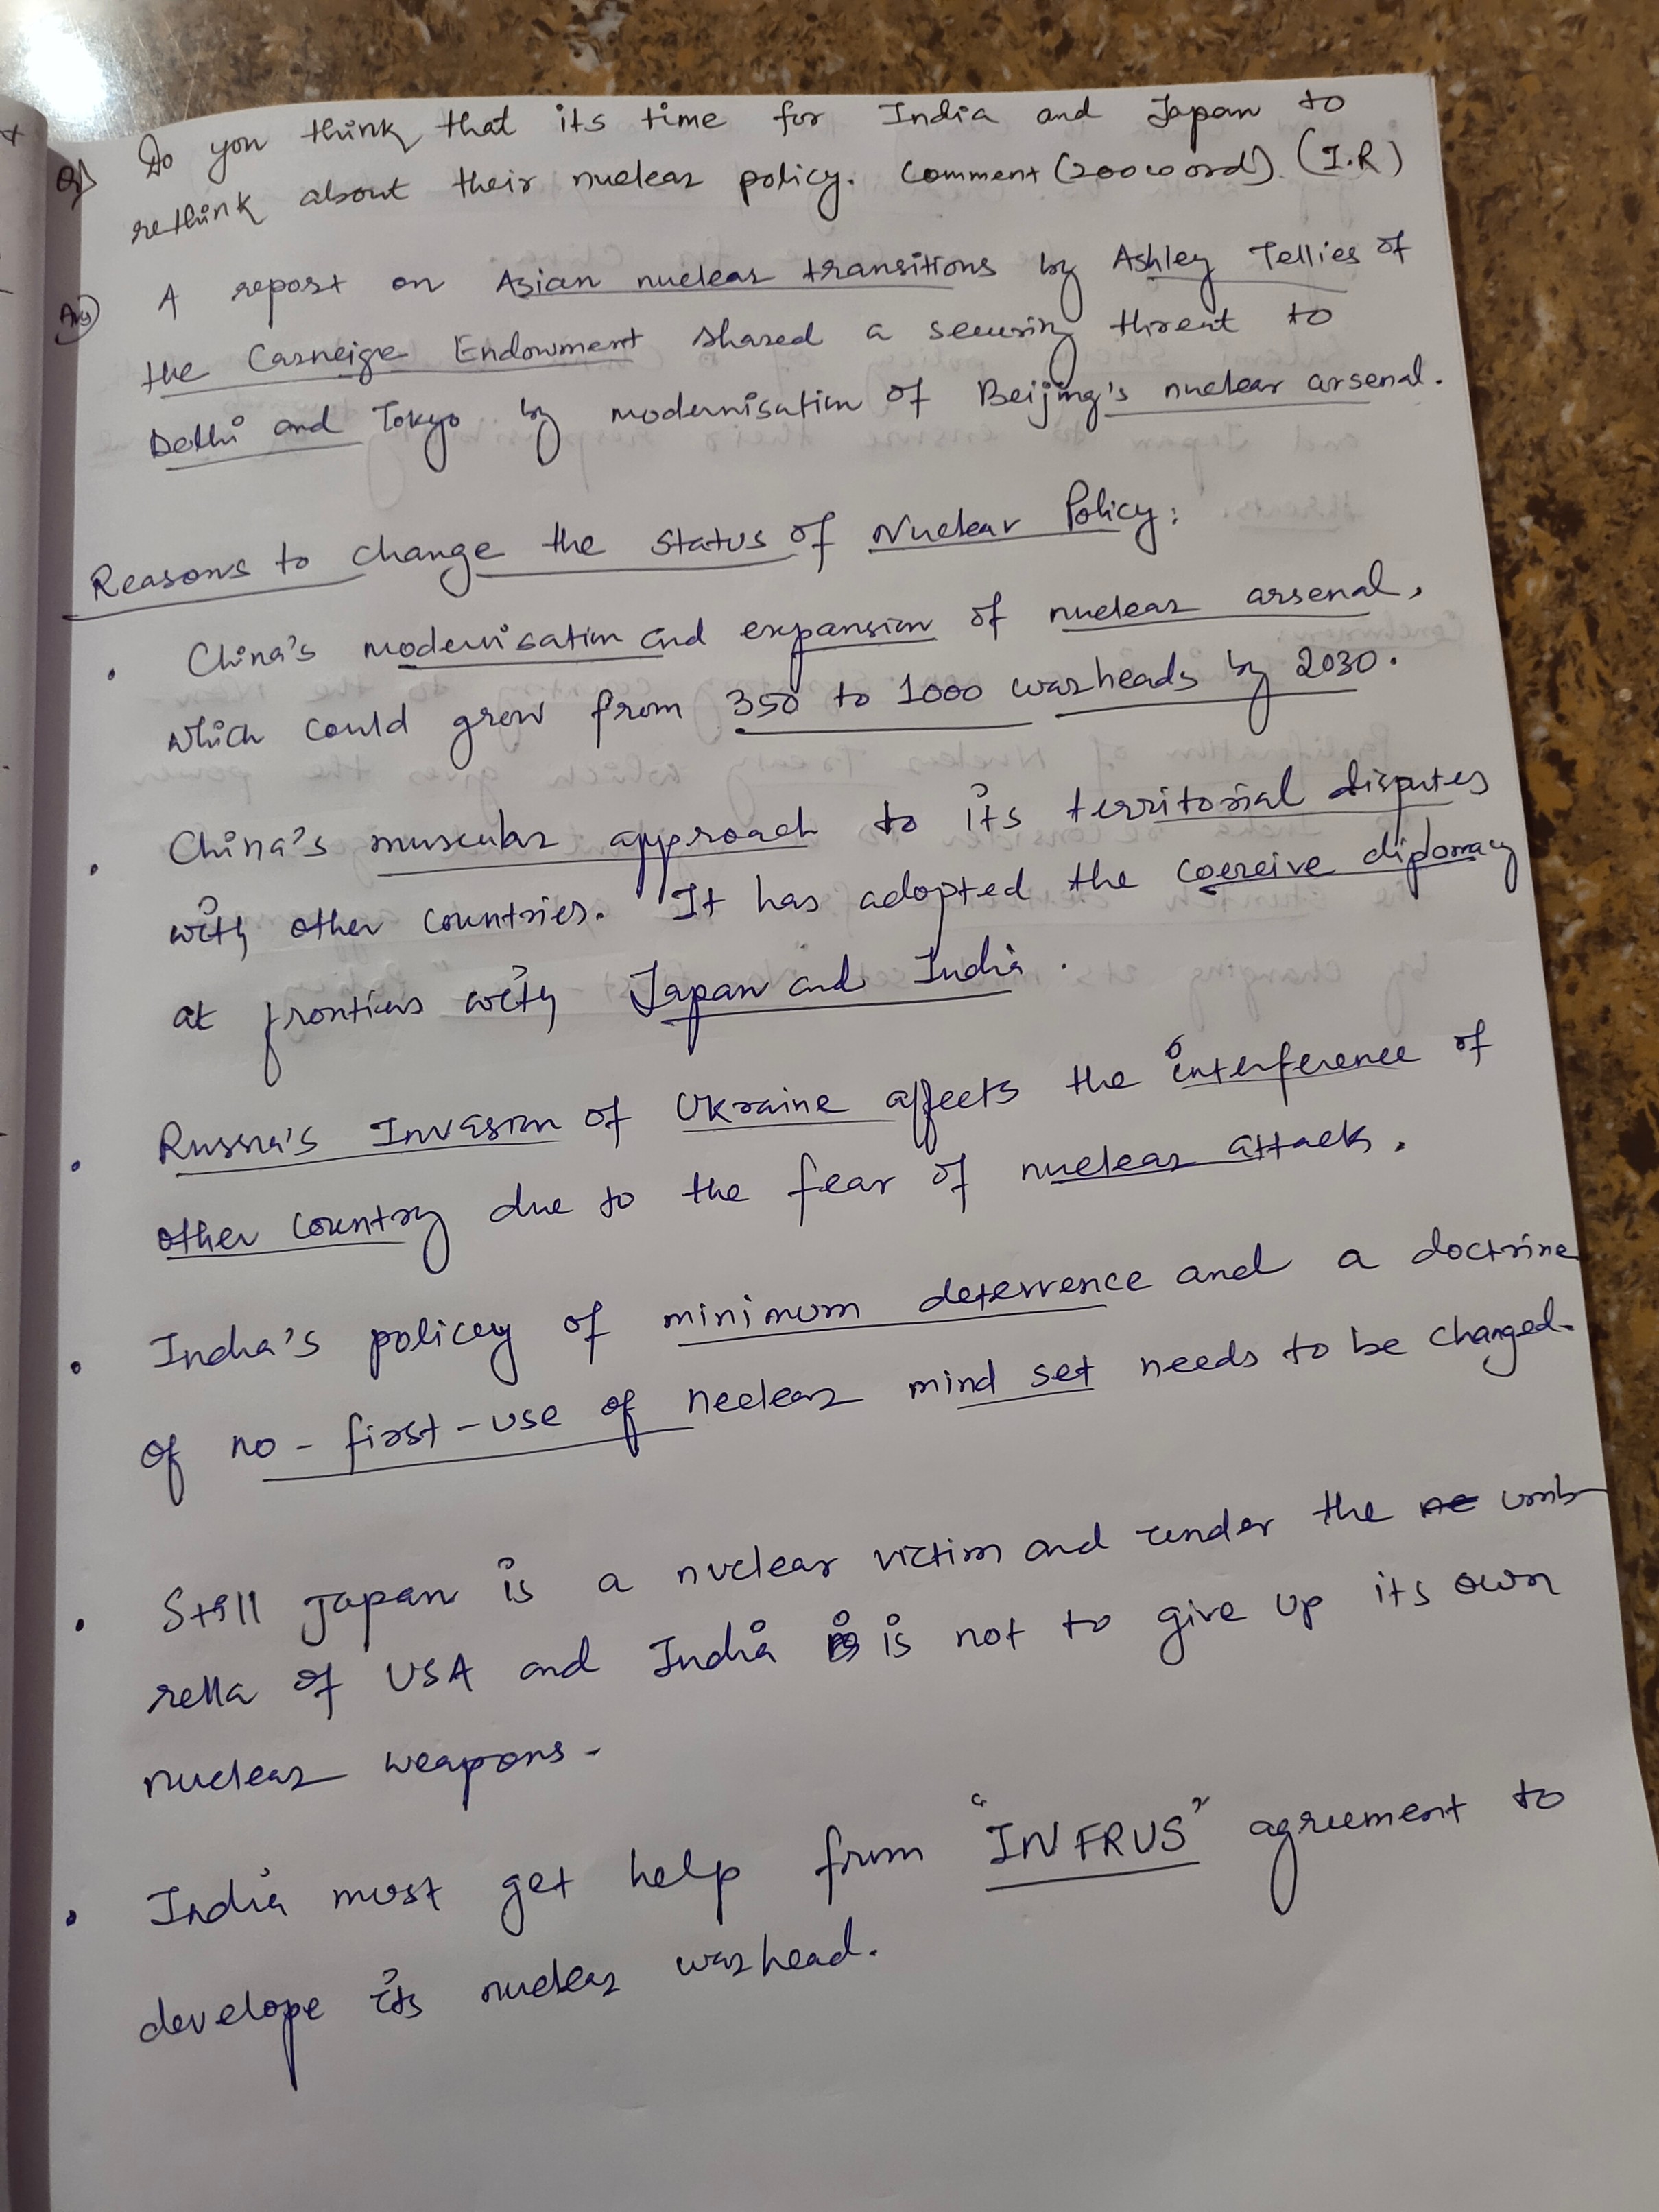 Q) Do you think that its time for India and Japan to
rethink about their nuclear policy. Comment (200 word). (I.R)
Ans) A report on Asian nuclear transitions by Ashley Tellies of
the Carneige Endowment shared a security threat to
Delhi and Tokyo by modernisation of Beijing's nuclear arsenal.
Reasons to change the status of Nuclear Policy:
• China's modernisation and expansion of nuclear arsenal,
which could grow from 350 to 1000 warheads by 2030.
• China's muscular approach to its territorial disputes
with other countries. It has adopted the coercive diplomacy
at frontiers with Japan and India.
• Russia's Invasion of Ukraine affects the interference of
other country due to the fear of nuclear attack.
• India's policey of minimum deterrence and a doctrine
of no-first-use of neclear mind set needs to be changed.
• Still Japan is a nuclear victim and under the umb
rella of USA and India is not to give up its own
nuclear weapons.
• India must get help from "INFRUS" agreement to
develope its nuclear warhead.